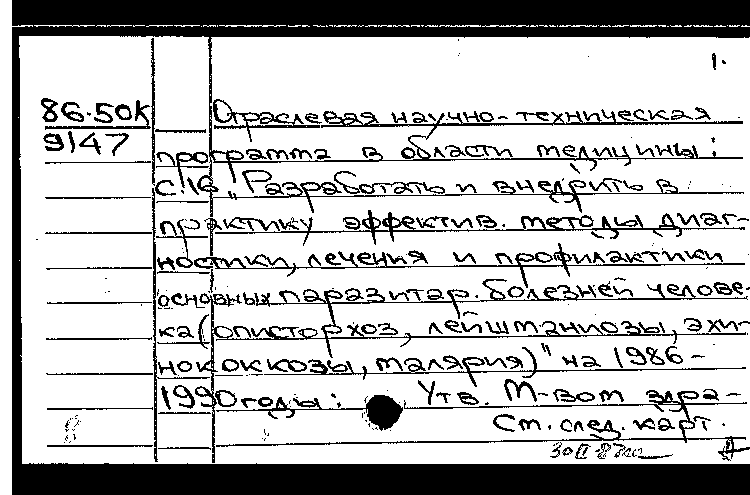 1.
86-50К Отраслевая научно-техническая
9147
программа в области медицины:
с!16 „Разработать и внедрить в
практику эффектив. методы диаг-
ностики, лечения и профилактики
основных паразитар. болезней челове-
ка (описторхоз, лейшманиозы, эхи-
нококкозы, малярия)" на 1986-
1990 годы: Утв. М-вом здра-
См. след. карт.